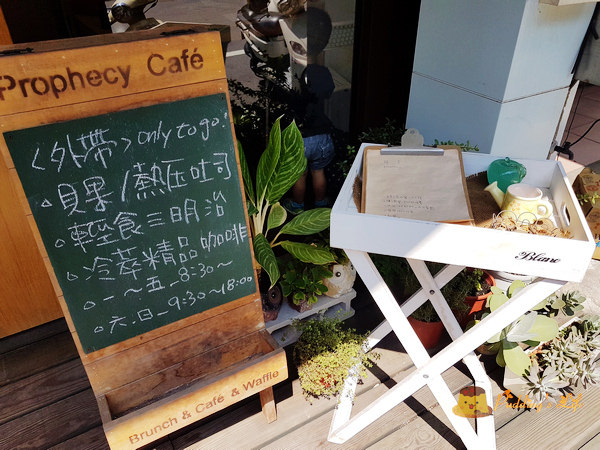 Prophecy Café
＜外帶＞only to go!
•貝果/熱压吐司
•輕食三明治
•冷萃精品咖啡
○一～五–8:30～
○六.日–9:30～18:00
Brunch & Café & Waffle
Blanc